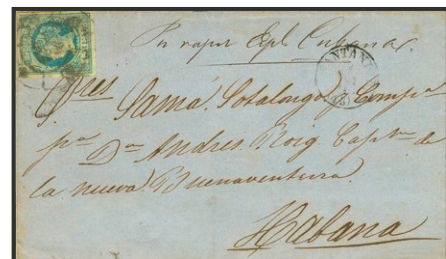 Pr vapor Esp. Cubana.
Sres Samá, Sotolongo y Compa
pa Dn Andres Roig Captn de
la nueva Buenaventura.
Habana